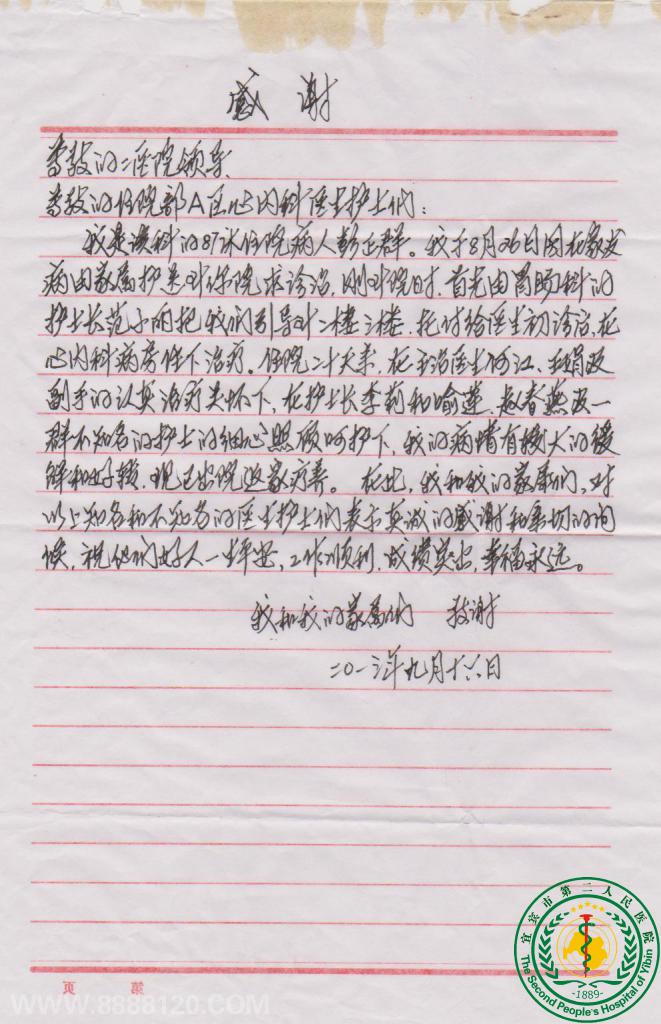 感谢
尊敬的二医院领导、
尊敬的住院部A区心内科医生护士们：
我是该科的87床住院病人彭正群。我于8月26日因在家发
病由家属护送到你院求诊治，刚到院时，首先由胃肠科的
护士长范小丽把我们引导到二楼，托付给医生初诊治，在
心内科病房住下治疗。住院二十天来，在主治医生何江、
副手的认真治疗关怀下，在护士长李莉和喻莲、赵春燕及一
群不知名的护士的细心照顾呵护下，我的病情有极大的缓
解和好转，现已出院返家疗养。在此，我和我的家属们，对
以上知名和不知名的医生护士们表示真诚的感谢和亲切的问
候，祝他们好人一生平安，工作顺利，成绩突出，幸福永远。
我和我的家属们 致谢
二〇一三年九月十六日
第 页
WWW.8888120.COM
宜宾市第二人民医院
-1889-
The Second People's Hospital of Yibin